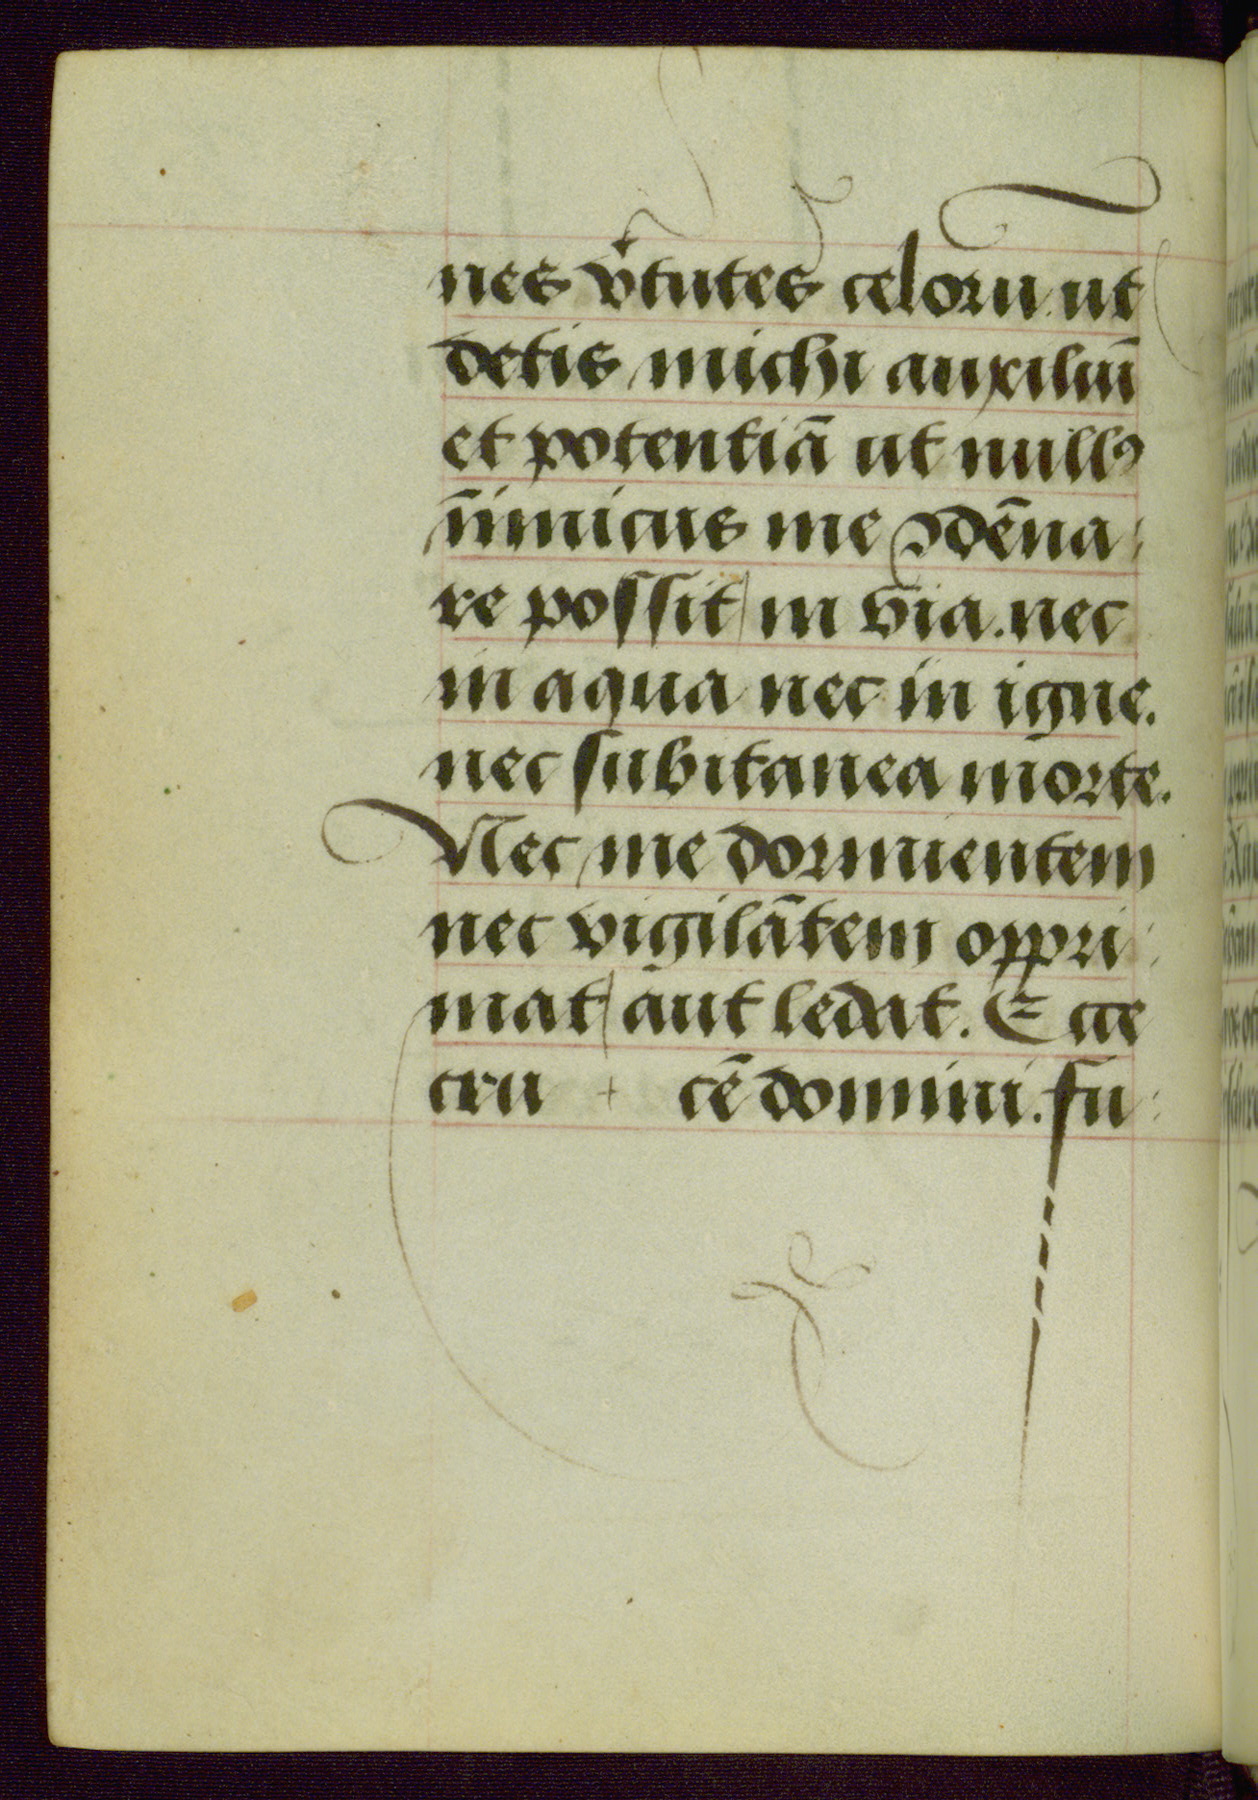 nes v̉tutes celoru ut
detis michi auxiliū
et potentiā ut nullꝰ
inimicus me ꝯdēna
re possit in via. nec
in aqua nec in igne.
nec subitanea morte.
Nec me dormientem
nec vigilātem oppri
mat aut ledat. Ecce
cru + cē domini. fu